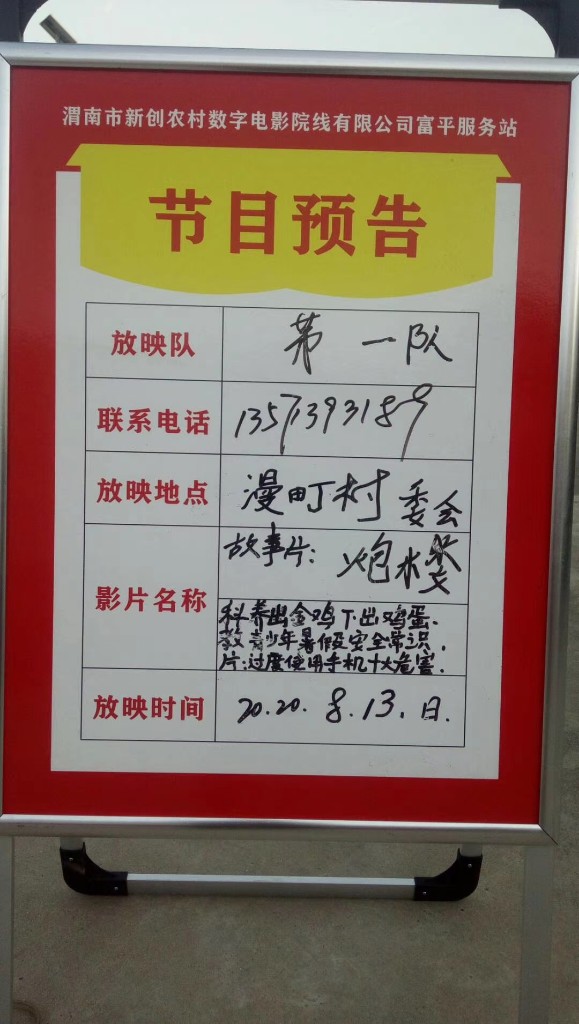 渭南市新创农村数字电影院线有限公司富平服务站
节目预告
放映队 第一队
联系电话 13571393189
放映地点 漫町村委会
影片名称 故事片:炮
科养出金鸡下出鸡蛋、
教青少年暑假及安全常识,
片:过度使用手机十大危害.
放映时间 20.20.8.13.日.